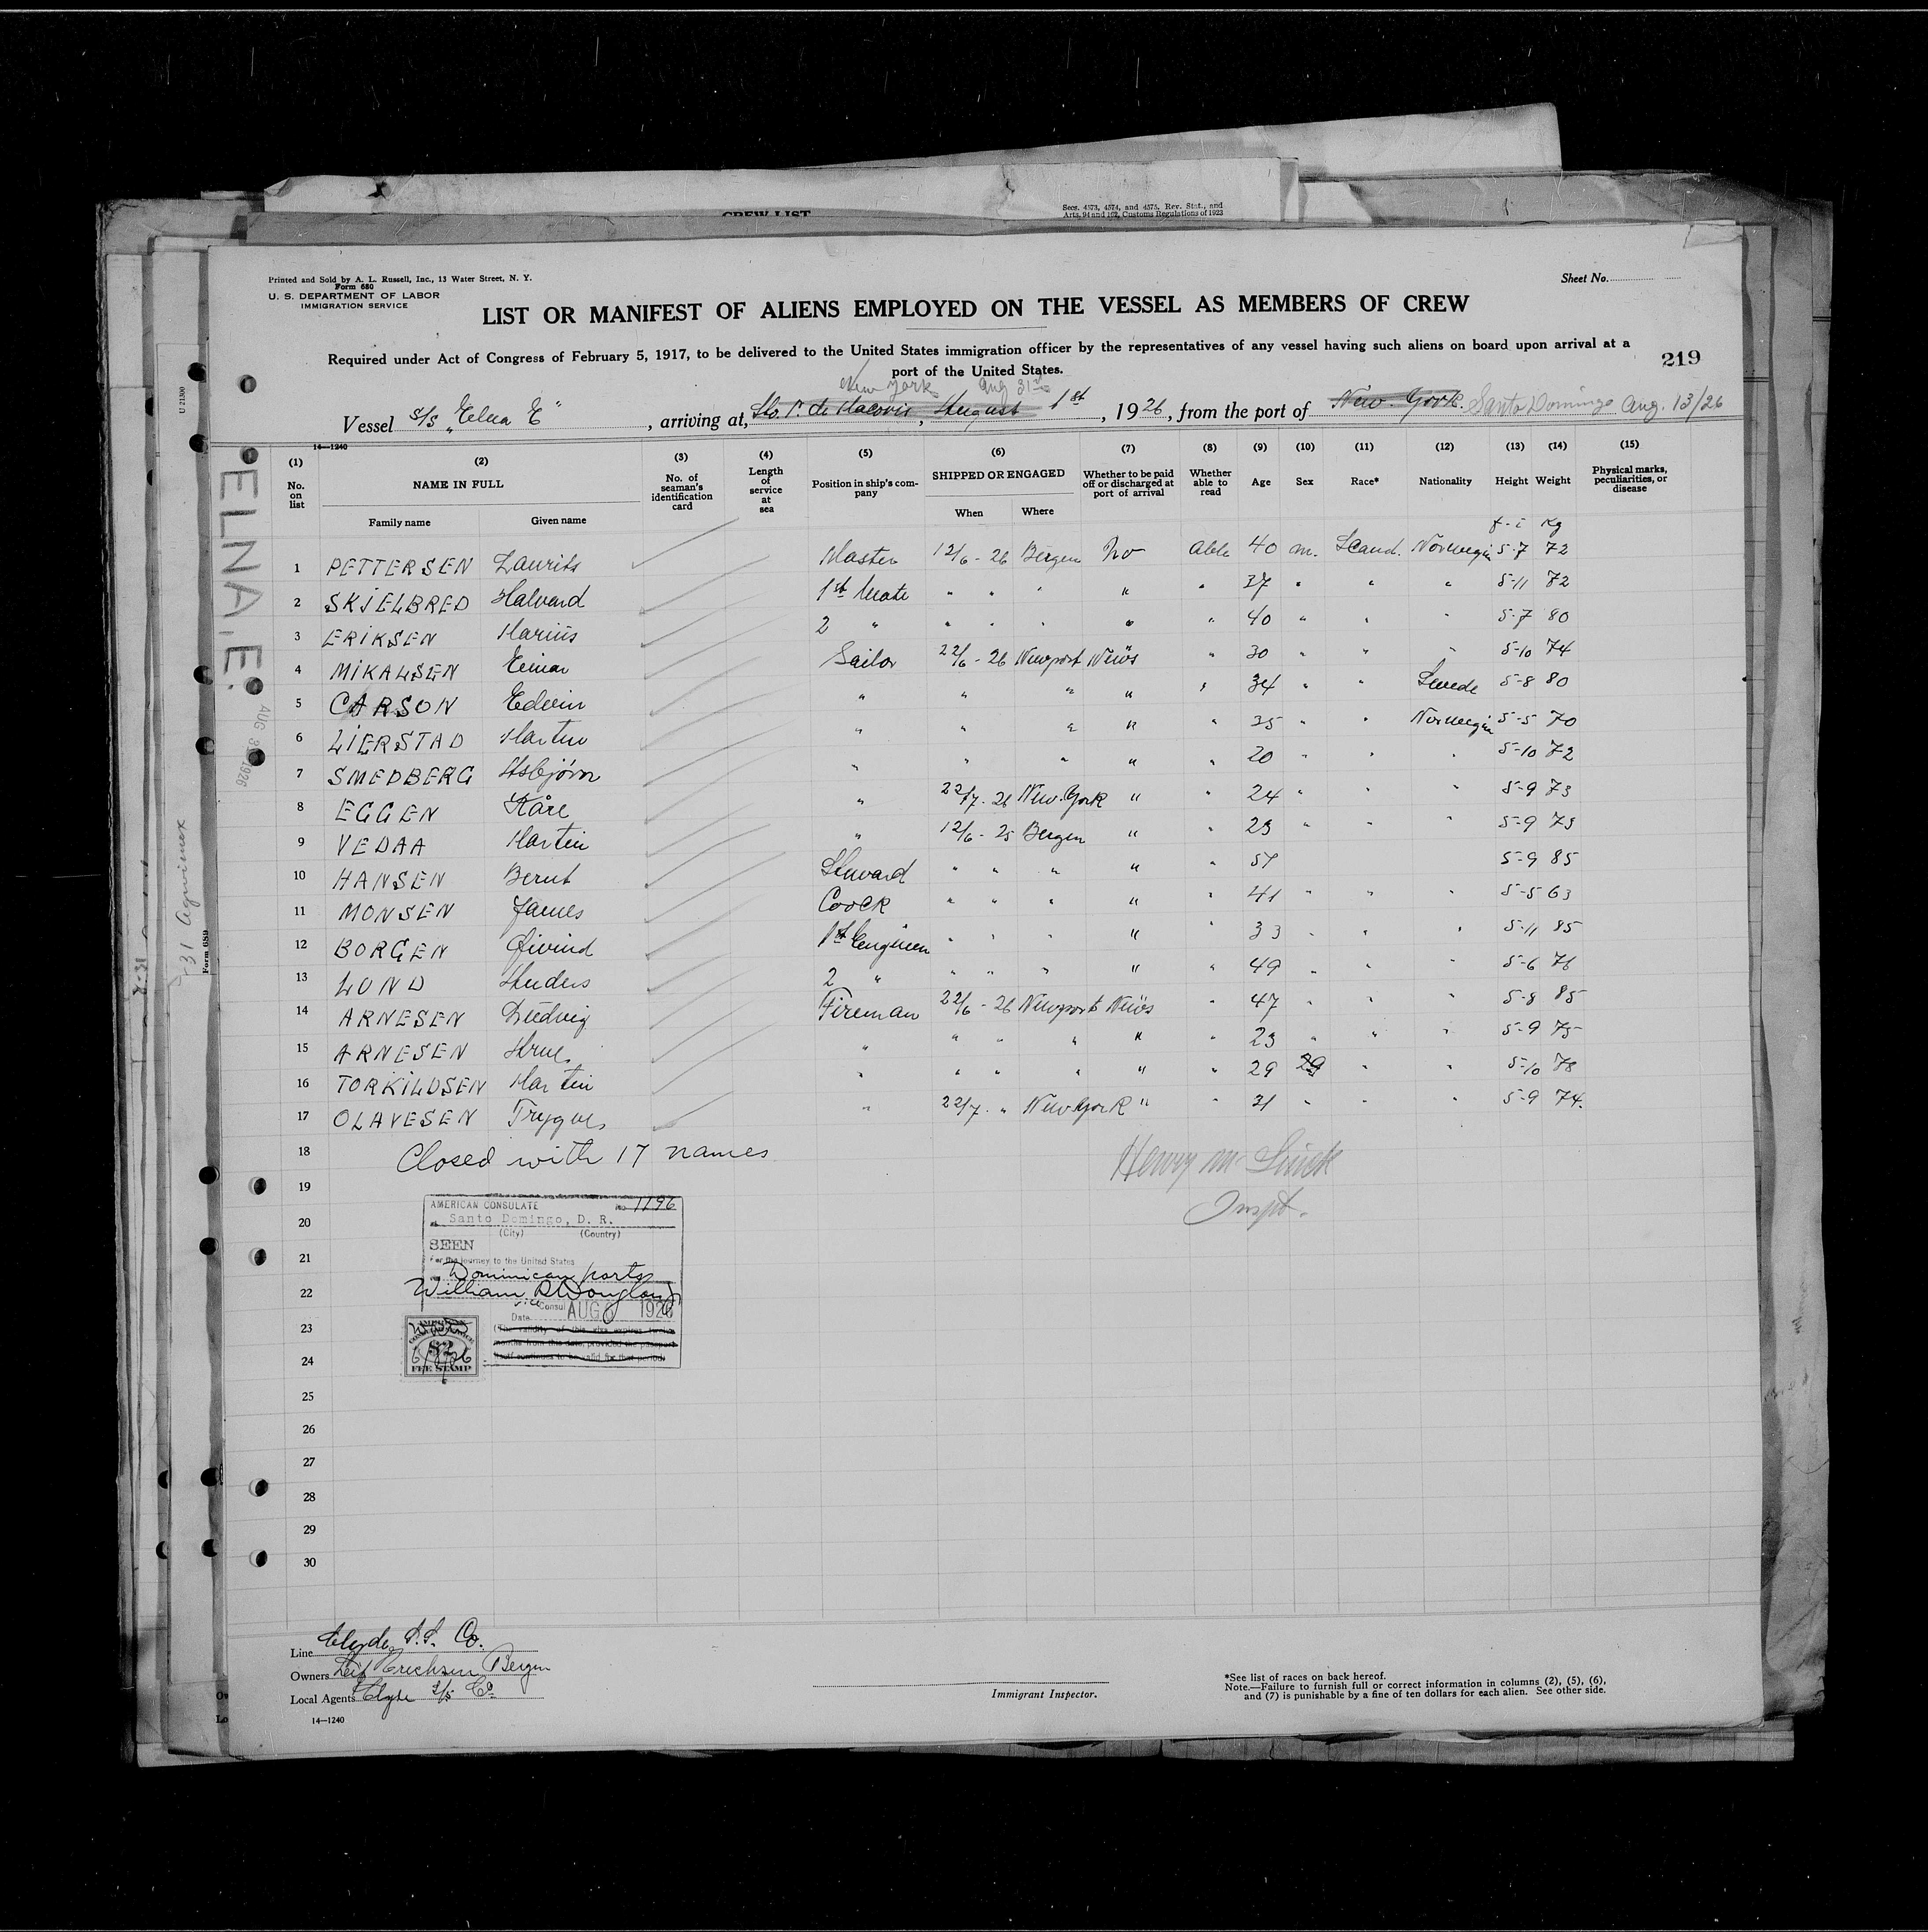 CREW LIST
Secs. 4573, 4574, and 4575, Rev. Stat., and
Arts. 94 and 162, Customs Regulations of 1923
Printed and Sold by A. L. Russell, Inc., 13 Water Street, N. Y.
Form 680
U. S. DEPARTMENT OF LABOR
IMMIGRATION SERVICE
Sheet No.
LIST OR MANIFEST OF ALIENS EMPLOYED ON THE VESSEL AS MEMBERS OF CREW
Required under Act of Congress of February 5, 1917, to be delivered to the United States immigration officer by the representatives of any vessel having such aliens on board upon arrival at a
port of the United States.
219
New York Aug 31st
Vessel S/S "Elna E", arriving at, Sto P. de Macoris, August 1st, 1926, from the port of New York. Santo Domingo Aug. 13/26
14—1240
(1) (2) (3) (4) (5) (6) (7) (8) (9) (10) (11) (12) (13) (14) (15)
No. on list NAME IN FULL No. of seaman's identification card Length of service at sea Position in ship's company SHIPPED OR ENGAGED Whether to be paid off or discharged at port of arrival Whether able to read Age Sex Race* Nationality Height Weight Physical marks, peculiarities, or disease
Family name Given name When Where
f - i Kg
1 PETTERSEN Laurits Master 12/6 - 26 Bergen No Able 40 m. Scand. Norwegin 5-7 72
2 SKJELBRED Halvard 1st Mate " " " " " 37 " " " 5-11 72
3 ERIKSEN Marius 2 " " " " " " 40 " " " 5-7 80
4 MIKALSEN Einar Sailor 22/6 - 26 Newport News " 30 " " " 5-10 74
5 CARSON Edvin " " " " " 34 " " Swede 5-8 80
6 LIERSTAD Martin " " " " " 35 " " Norwegin 5-5 70
7 SMEDBERG Asbjörn " " " " " 20 " " " 5-10 72
8 EGGEN Kåre " 22/7 - 26 New York " " 24 " " " 5-9 73
9 VEDAA Martin " 12/6 - 25 Bergen " " 23 " " " 5-9 73
10 HANSEN Bernt Steward " " " " " 57 5-9 85
11 MONSEN James Coock " " " " " 41 " " " 5-5 63
12 BORGEN Øivind 1st Engineer " " " " " 33 " " " 5-11 85
13 LUND Anders 2 " " " " " " 49 " " " 5-6 76
14 ARNESEN Ludvig Fireman 22/6 - 26 Newport News " 47 " " " 5-8 85
15 ARNESEN Arne " " " " " " 23 " " " 5-9 75
16 TORKILDSEN Martin " " " " " " 29 29 " " 5-10 78
17 OLAVESEN Trygve " 22/7 " New York " " 31 " " " 5-9 74.
18 Closed with 17 names
19
20
21
22
23
24
25
26
27
28
29
30
Inspt.
AMERICAN CONSULATE No 1196
at Santo Domingo, D. R.
(City) (Country)
SEEN
For the journey to the United States
Dominican ports
William
Vice Consul
Date AUG 1926
(The validity of this visa expires twelve
months from this date, provided the passport
itself continues to be valid for that period)
$2
FEE STAMP
ELNA. E.
AUG 31 1926
U 21300
Form 689
Line Clyde S.S. Co.
Owners Leif Erichsen Bergen
Local Agents Clyde S/S Co.
14—1240
Immigrant Inspector.
*See list of races on back hereof.
Note.—Failure to furnish full or correct information in columns (2), (5), (6),
and (7) is punishable by a fine of ten dollars for each alien. See other side.